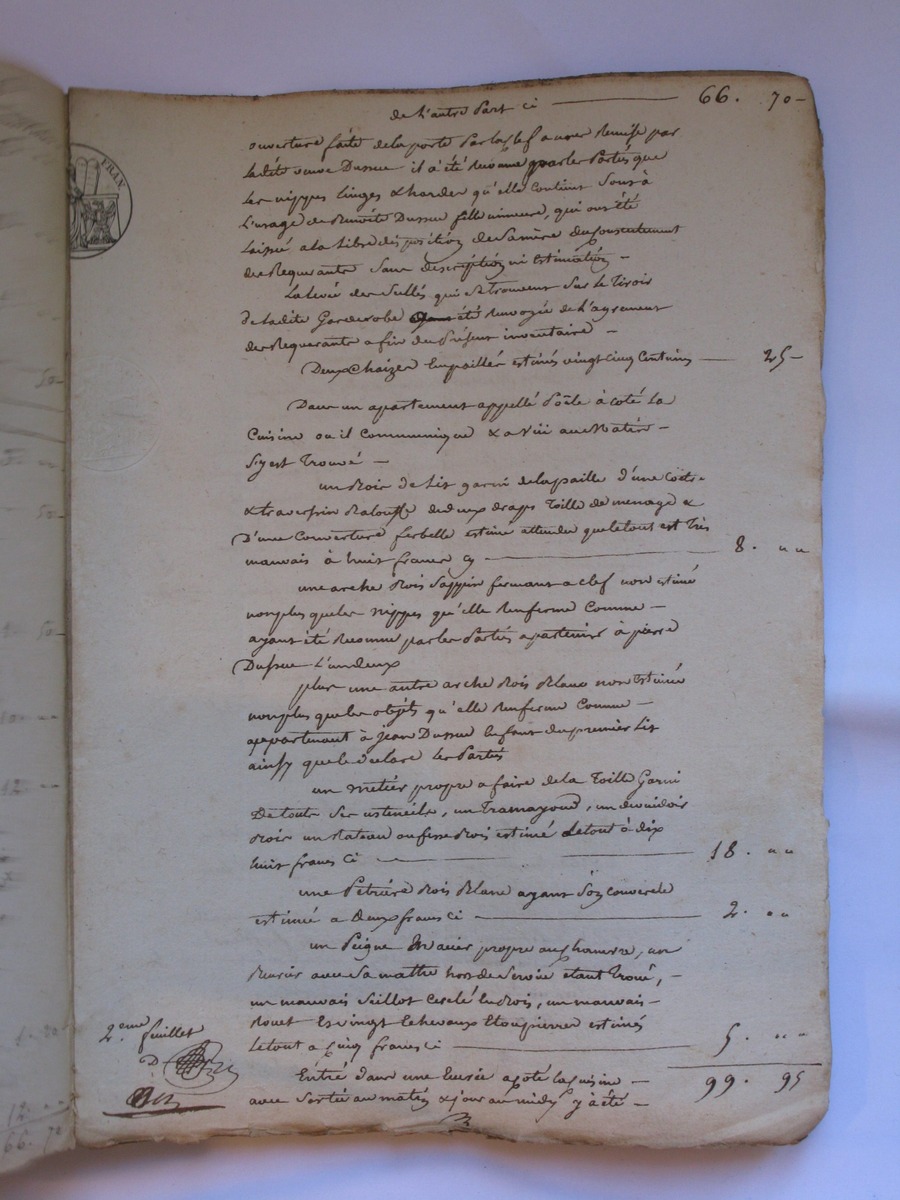 de L'autre Part ci — 66. 70 -
ouverture faite de la porte Par la clef a nous Remise par
ladite veuve Dussue il a été Reconnu par les Partis que
les nippes linges & hardes qu'elle contient Sont à
L'usage de Dussue fille mineure, qui ont été
Laissé a la libre disposition de Sa mère du Consentement
des Requerants Sans description ni Estimation -
La levée des Scellés qui se trouvent Sur le Tiroir
de ladite Garderobe été Renvoyée de L'agrement
des Requerants a fin du Présent inventaire -
Deux Chaizes Empaillés estimés vingt cinq Centimes — 25 -
Dans un apartement appellé Poêle à coté La
Cuisine ou il Communique & a vüe au Matin -
S'y est Trouvé -
un Bois de Lit garni de la paille d'une Coëtre
& traversin de deux draps Toille de menage &
D'une Couverture estimé attendu que le tout est Très
mauvais à huit francs cy — 8. " "
une arche Bois Sappin fermant a clef non estimé
non plus que les nippes qu'elle Renferme Comme -
ayant été Reconnu par les Partis apartenir à pierre
Dussue L'un deux
plus une autre arche Bois Blanc non Estimé
non plus que les objets qu'elle Renferme Comme -
appartenant à Jean Dussue Enfant du premier Lit
ainsy que le déclare les Partis
un métiér propre a faire de la Toille Garni
De touts Ses ustencils, un , un devuidoir
Bois un Rateau Bois estimé Le tout à dix
huit francs Ci — 18. " "
une Pétriere Bois Blanc ayant Son Couvercle
estimé a Deux francs ci — 2. " "
un Peigne propre au Chanvre, un
avec Sa hors de Service etant Troué, -
un mauvais Seillot Cerclé En Bois, un mauvais -
Rouet & vingt Echevaux Etoupieres estimés
Le tout a Cinq francs Ci — 5. " "
99. 95
Entré dans une Ecurie a coté la Cuisine -
avec Sortie au matin & jour au midy y à été -
2.eme feuillet
FRAN